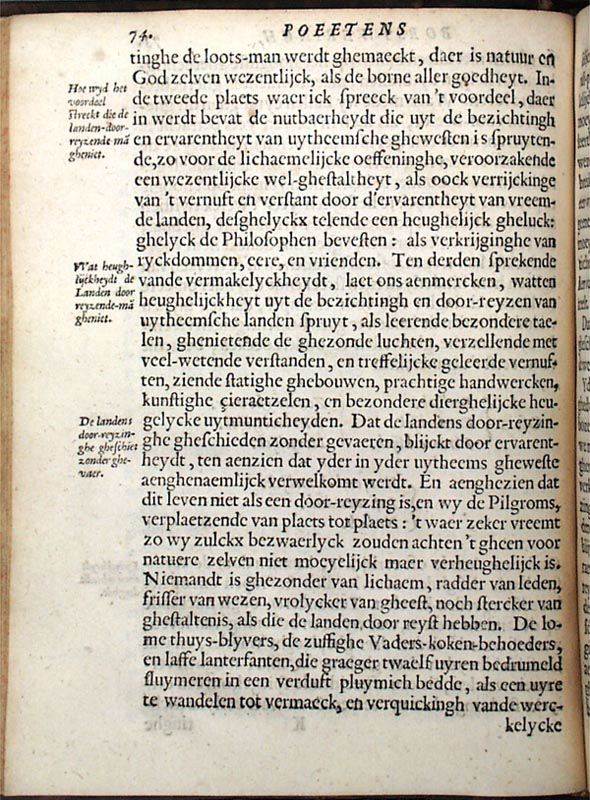 74. POEETENS
tinghe de loots-man werdt ghemaeckt, daer is natuur en
God zelven wezentlijck, als de borne aller goedheyt. In-
de tweede plaets waer ick spreeck van 't voordeel, daer
in werdt bevat de nutbaerheydt die uyt de bezichtingh
en ervarentheyt van uytheemsche ghewesten is spruyten-
de, zo voor de lichaemelijcke oeffeninghe, veroorzakende
een wezentlijcke wel-ghestaltheyt, als oock verrijckinge
van 't vernuft en verstant door d'ervarentheyt van vreem-
de landen, desghelyckx telende een heughelijck gheluck:
ghelyck de Philosophen bevesten: als verkrijginghe van
ryckdommen, eere, en vrienden. Ten derden sprekende
vande vermakelyckheydt, laet ons aenmercken, watten
heughelijckheyt uyt de bezichtingh en door-reyzen van
uytheemsche landen spruyt, als leerende bezondere tae-
len, ghenietende de ghezonde luchten, verzellende met
veel-wetende verstanden, en treffelijcke geleerde vernuf-
ten, ziende statighe ghebouwen, prachtige handwercken,
kunstighe çieraetzelen, en bezondere dierghelijcke heu-
gelycke uytmunticheyden. Dat de landens door-reyzin-
ghe gheschieden zonder gevaeren, blijckt door ervarent-
heydt, ten aenzien dat yder in yder uytheems gheweste
aenghenaemlijck verwelkomt werdt. En aenghezien dat
dit leven niet als een door-reyzing is, en wy de Pilgroms,
verplaetzende van plaets tot plaets: 't waer zeker vreemt
zo wy zulckx bezwaerlyck zouden achten 't gheen voor
natuere zelven niet moeyelijck maer verheughelijck is.
Niemandt is ghezonder van lichaem, radder van leden,
frisser van wezen, vrolycker van gheest, noch stercker van
ghestaltenis, als die de landen door reyst hebben. De lo-
me thuys-blyvers, de zuffighe Vaders-koken-behoeders,
en laffe lanterfanten, die graeger twaelf uyren bedrumeld
sluymeren in een verduft pluymich bedde, als een uyre
te wandelen tot vermaeck, en verquickingh vande werc-
kelycke
Hoe wyd het
voordeel
streckt die de
landen-door-
reyzende mā
gheniet.
Wat heugh-
lijckheydt de
Landen door
reyzende-mā
gheniet.
De landens
door-reyzin-
ghe gheschiet
zonder ghe-
vaer.